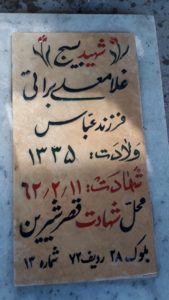 شهید بسیج
غلامعلی براتی
فرزند عباس
ولادت: ۱۳۳۵
شهادت: ۶۲/۲/۱۱
محل شهادت قصرشیرین
بلوک ۲۸ ردیف ۷۲ شماره ۱۳